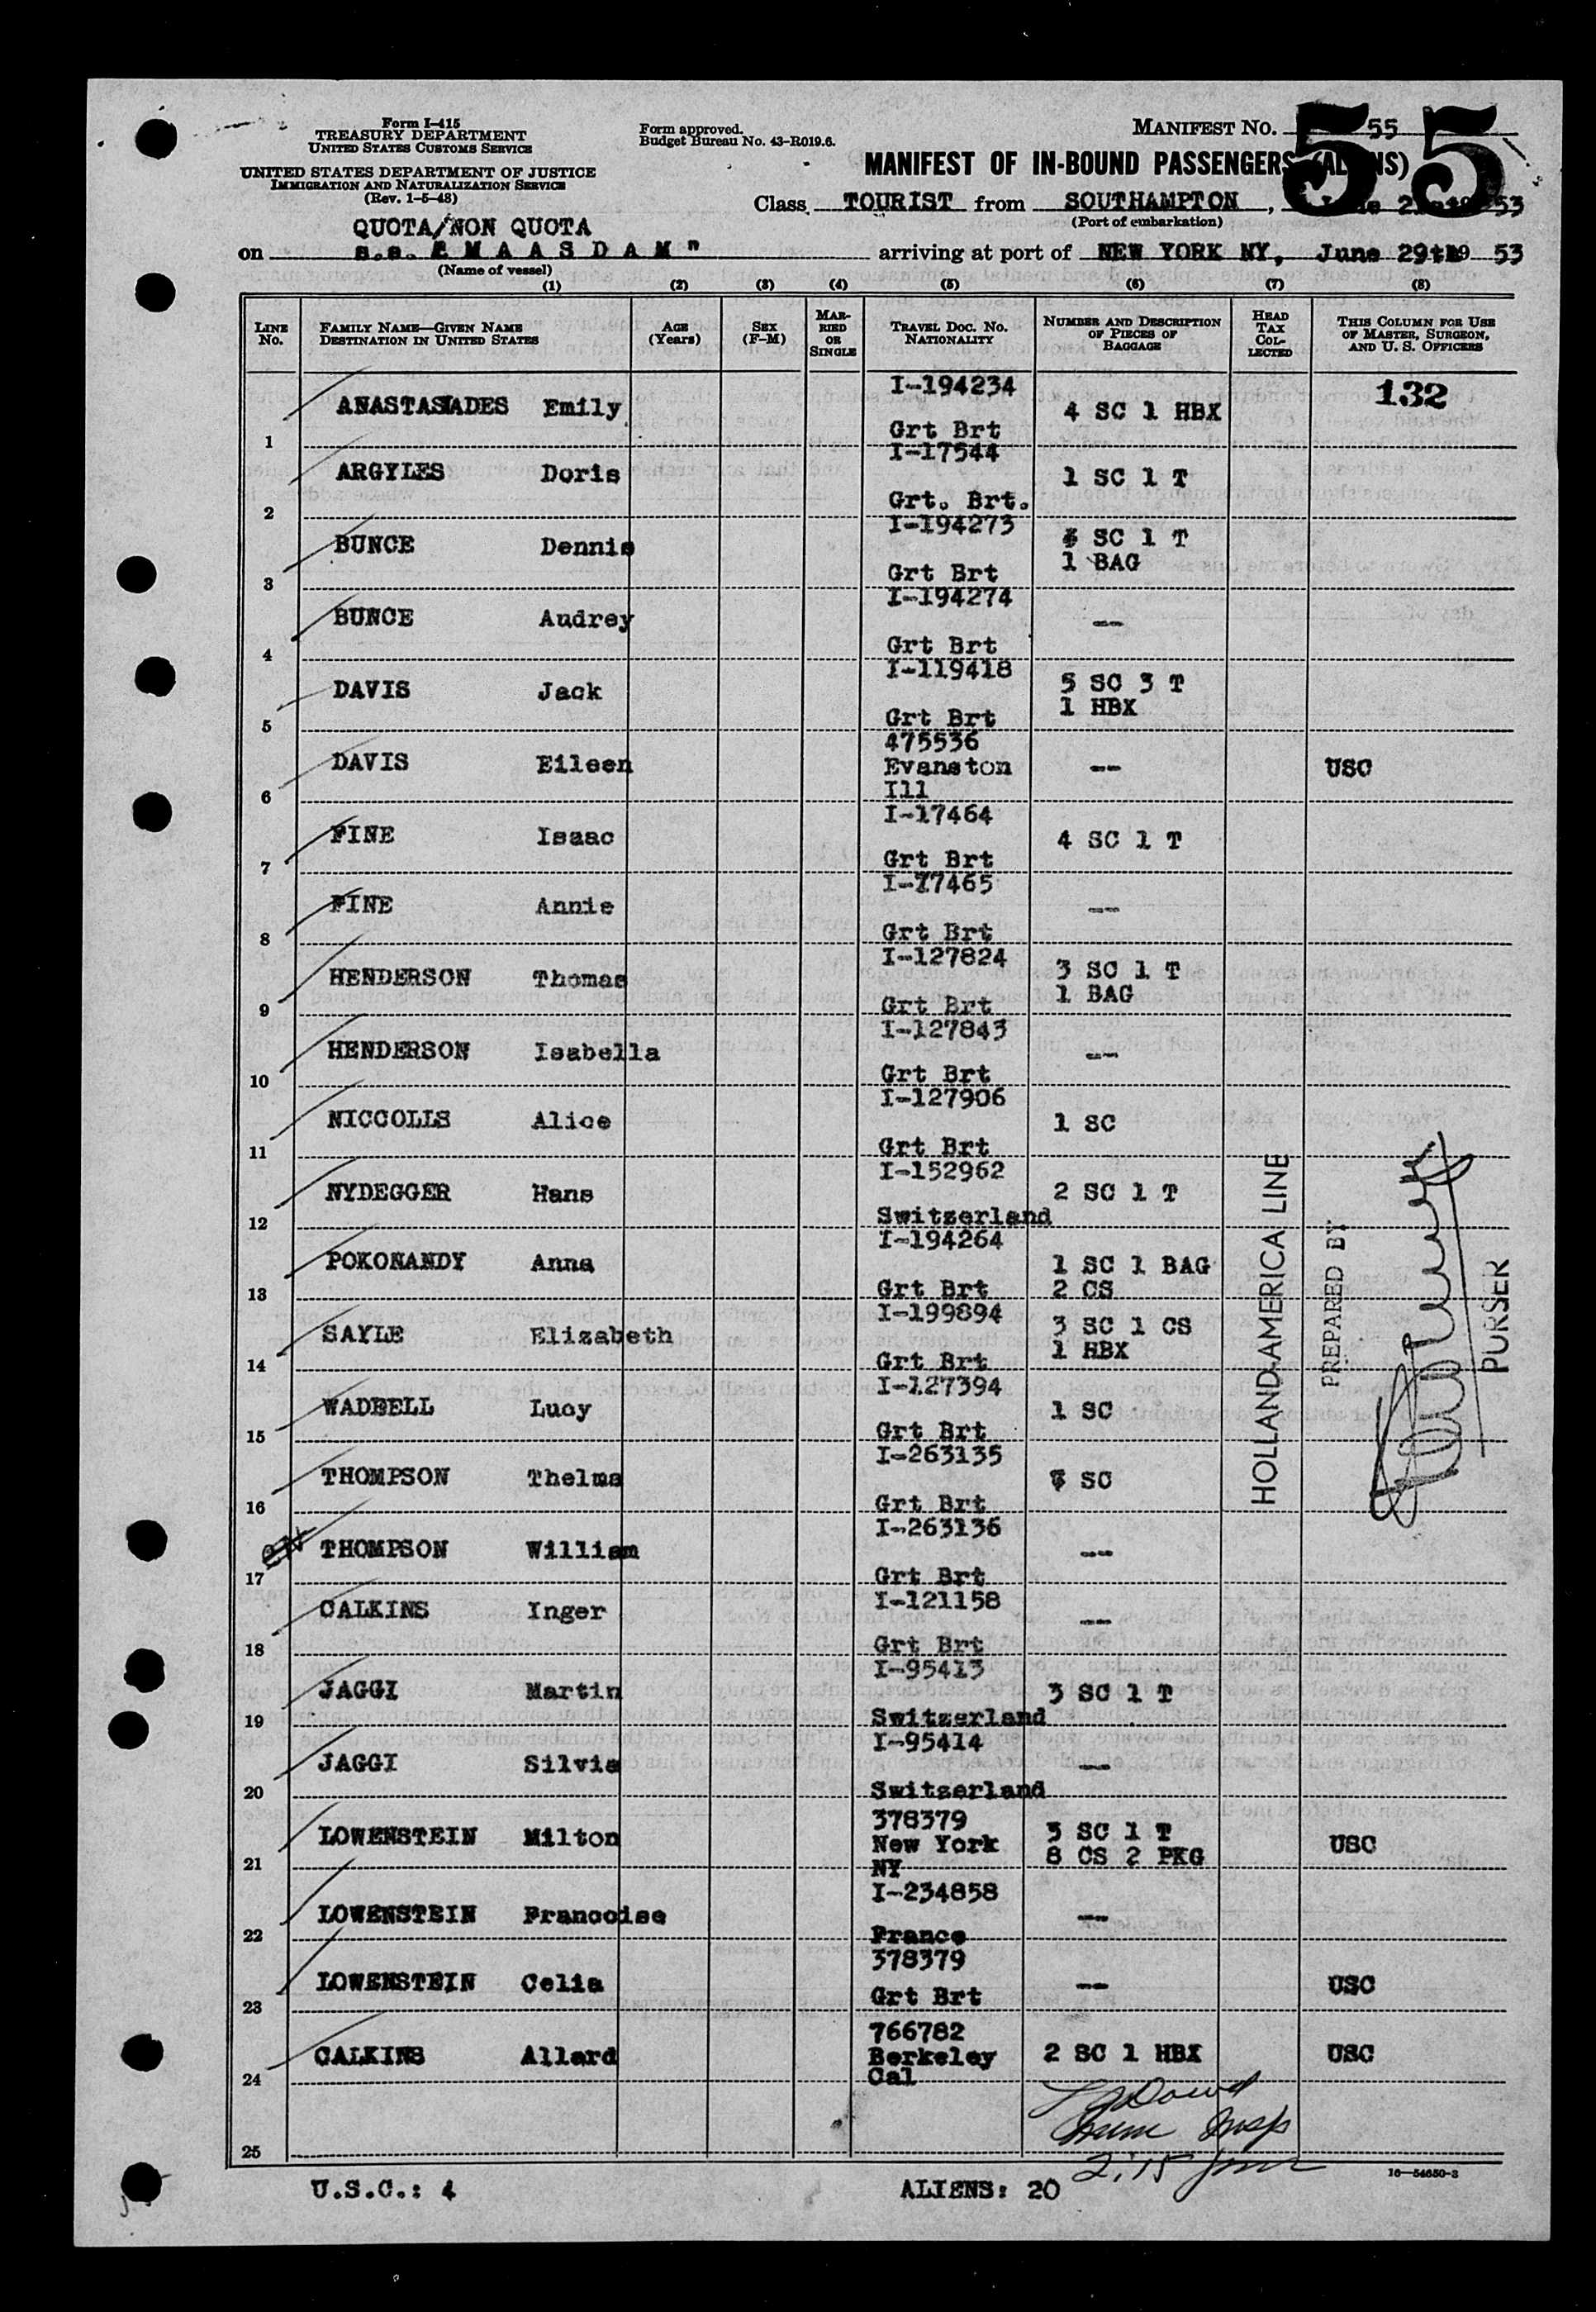 Form I-415
TREASURY DEPARTMENT
UNITED STATES CUSTOMS SERVICE
UNITED STATES DEPARTMENT OF JUSTICE
IMMIGRATION AND NATURALIZATION SERVICE
(Rev. 1-5-48)
Form approved.
Budget Bureau No. 43-R019.6.
MANIFEST NO. 55
55
MANIFEST OF IN-BOUND PASSENGERS (ALIENS)
Class TOURIST from SOUTHAMPTON, 53
(Port of embarkation)
QUOTA/NON QUOTA
on s.s. M A A S D A M " arriving at port of NEW YORK NY, June 29th 53
(Name of vessel)
(1) (2) (3) (4) (5) (6) (7) (8)
LINE No.
FAMILY NAME—GIVEN NAME DESTINATION IN UNITED STATES
AGE (Years)
SEX (F-M)
MARRIED OR SINGLE
TRAVEL DOC. NO. NATIONALITY
NUMBER AND DESCRIPTION OF PIECES OF BAGGAGE
HEAD TAX COLLECTED
THIS COLUMN FOR USE OF MASTER, SURGEON, AND U. S. OFFICERS
132
1 ANASTASIADES Emily I-194234 Grt Brt 4 SC 1 HBX
2 ARGYLES Doris I-17544 Grt. Brt. 1 SC 1 T
3 BUNCE Dennis I-194273 Grt Brt SC 1 T 1 BAG
4 BUNCE Audrey I-194274 Grt Brt --
5 DAVIS Jack I-119418 Grt Brt 5 SC 3 T 1 HBX
6 DAVIS Eileen 475536 Evanston Ill -- USC
7 FINE Isaac I-17464 Grt Brt 4 SC 1 T
8 FINE Annie I-17465 Grt Brt --
9 HENDERSON Thomas I-127824 Grt Brt 3 SC 1 T 1 BAG
10 HENDERSON Isabella I-127843 Grt Brt --
11 NICCOLLS Alice I-127906 Grt Brt 1 SC
12 NYDEGGER Hans I-152962 Switzerland 2 SC 1 T
13 POKONANDY Anna I-194264 Grt Brt 1 SC 1 BAG 2 CS
14 SAYLE Elizabeth I-199894 Grt Brt 3 SC 1 CS 1 HBX
15 WADBELL Lucy I-127394 Grt Brt 1 SC
16 THOMPSON Thelma I-263135 Grt Brt SC
17 THOMPSON William I-263136 Grt Brt --
18 CALKINS Inger I-121158 Grt Brt --
19 JAGGI Martin I-95413 Switzerland 3 SC 1 T
20 JAGGI Silvia I-95414 Switzerland --
21 LOWENSTEIN Milton 378379 New York NY 3 SC 1 T 8 CS 2 PKG USC
22 LOWENSTEIN Francoise I-234858 France --
23 LOWENSTEIN Celia 378379 Grt Brt -- USC
24 CALKINS Allard 766782 Berkeley Cal 2 SC 1 HBX USC
25
HOLLAND-AMERICA LINE
PREPARED BY
PURSER
Insp
2:15
16—54650-3
U.S.C.: 4
ALIENS: 20